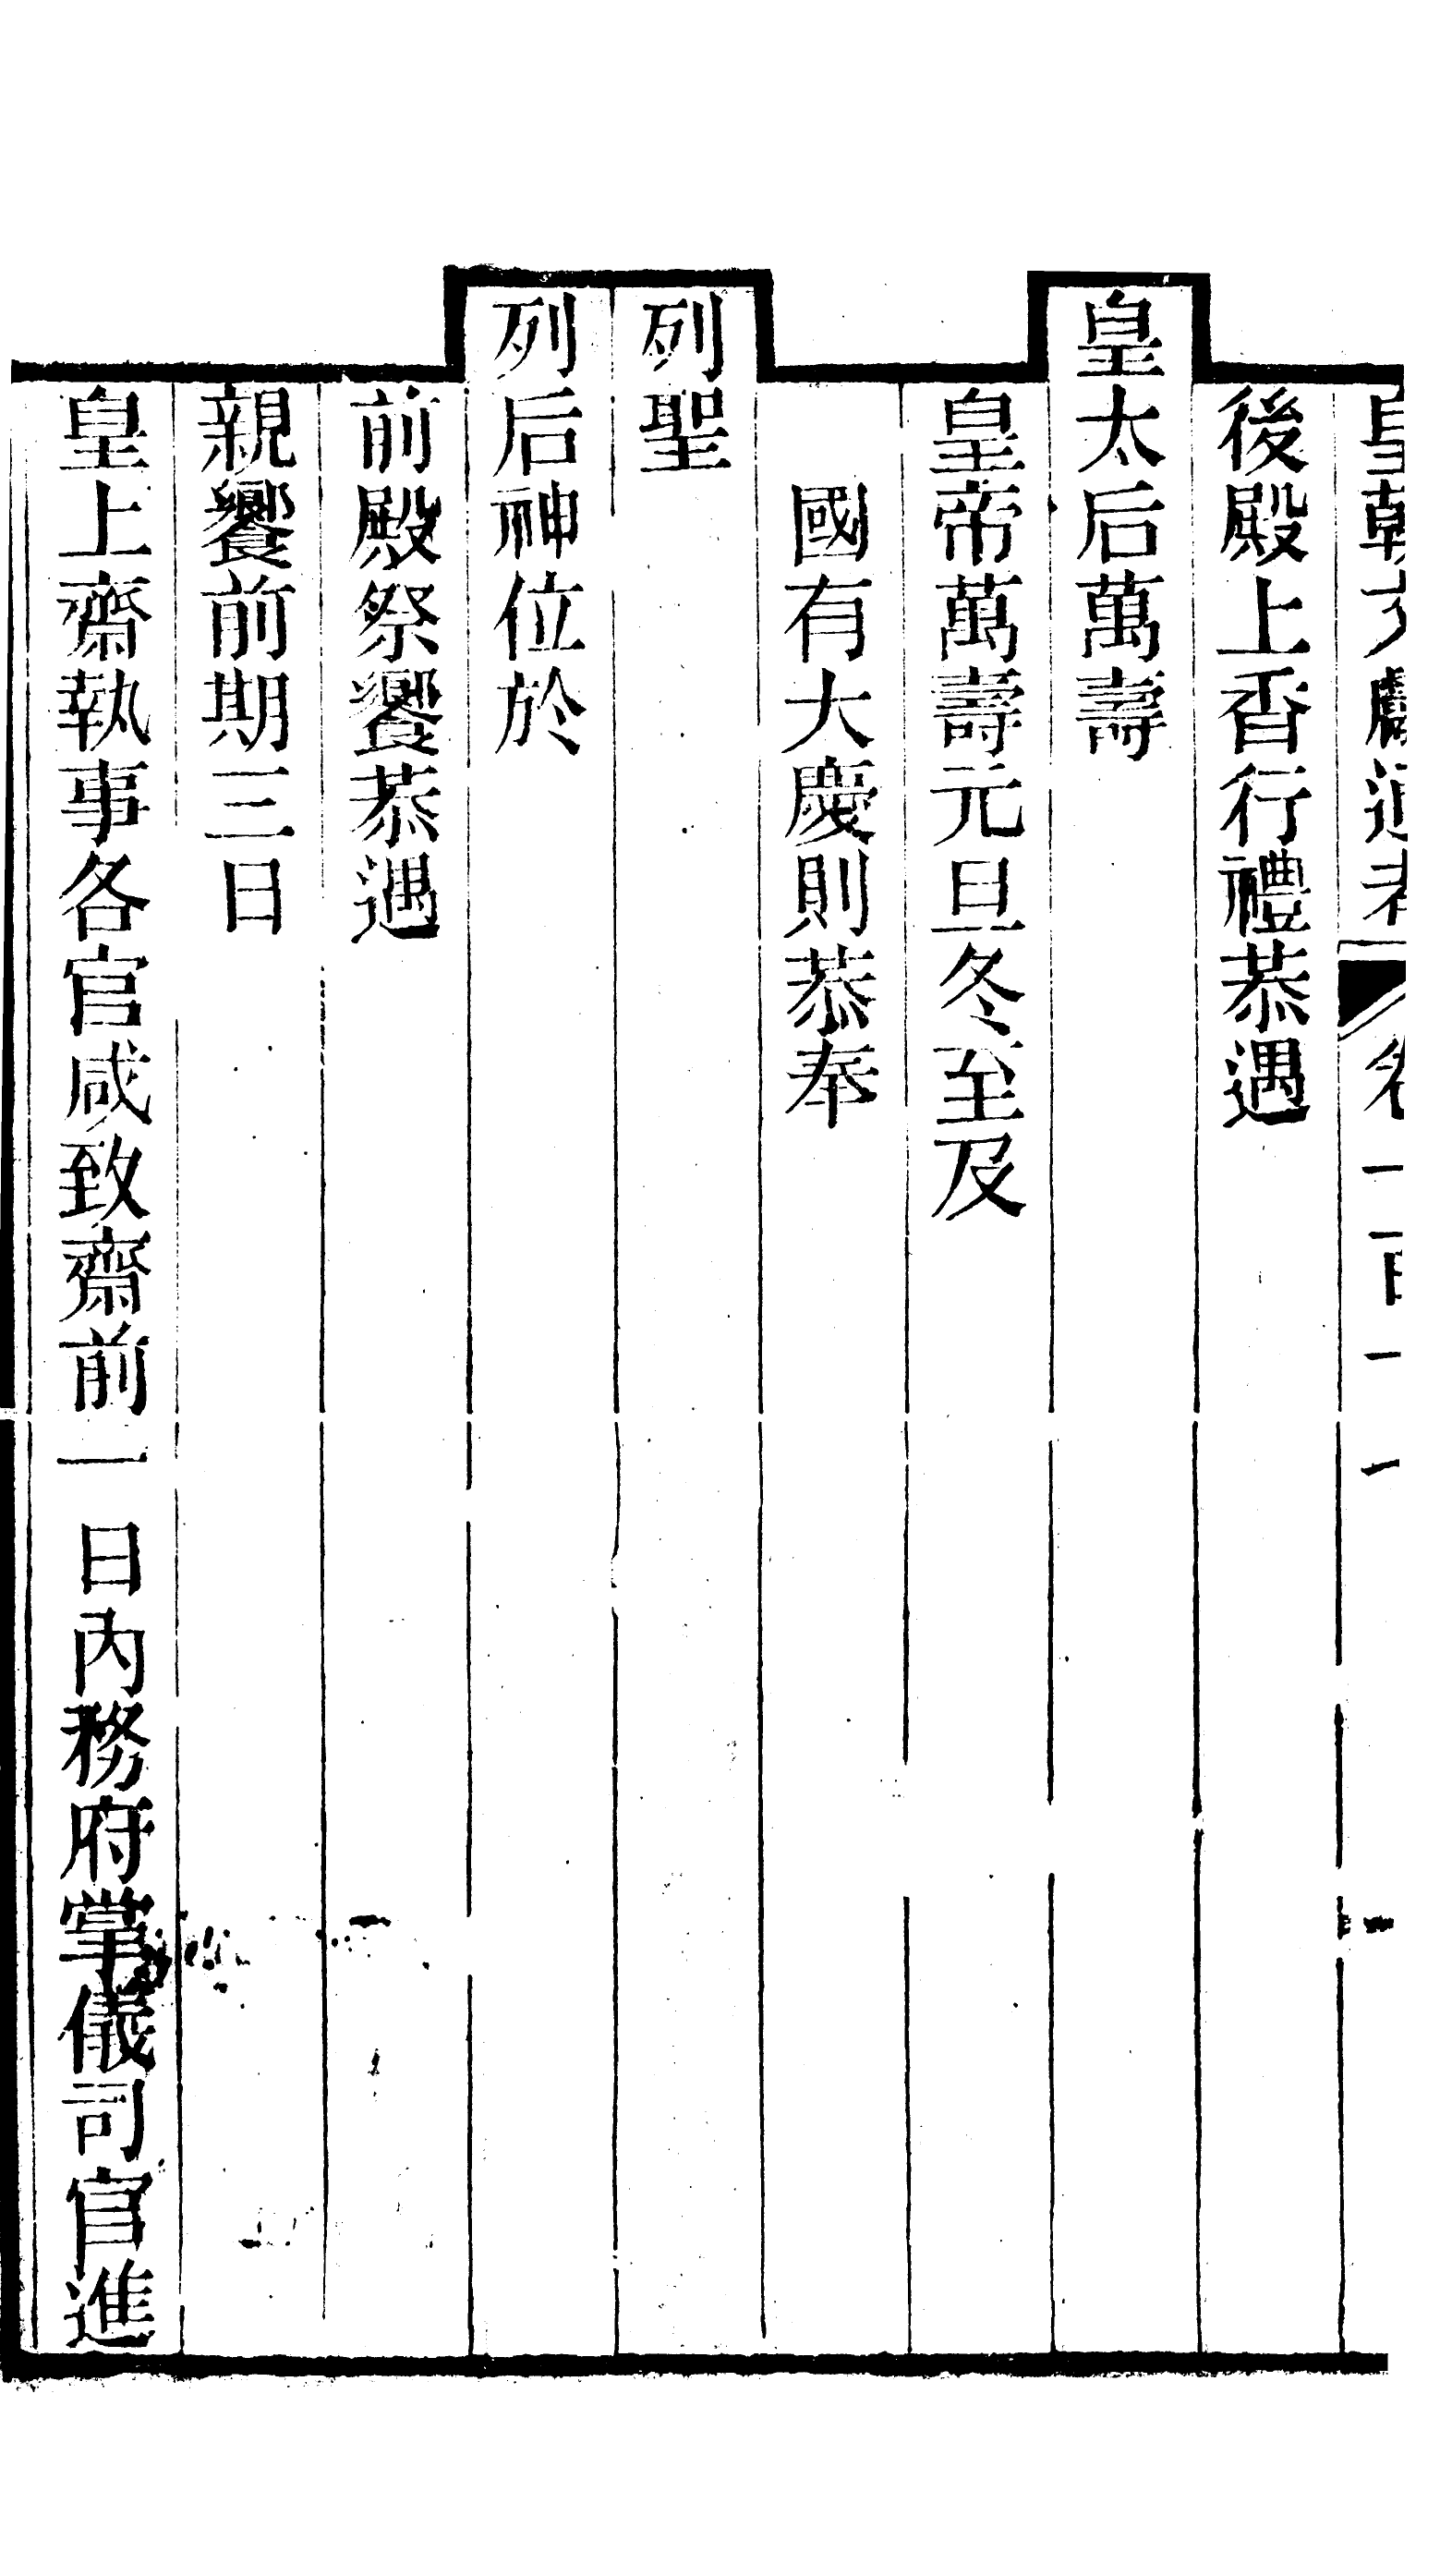 後殿上香行禮恭遇
皇太后萬壽
皇帝萬壽元旦冬至及
國有大慶則恭奉
列聖
列后神位於
前殿祭饗恭遇
親饗前期三日
皇上齋執事各官咸致齋前一日內務府掌儀司官進